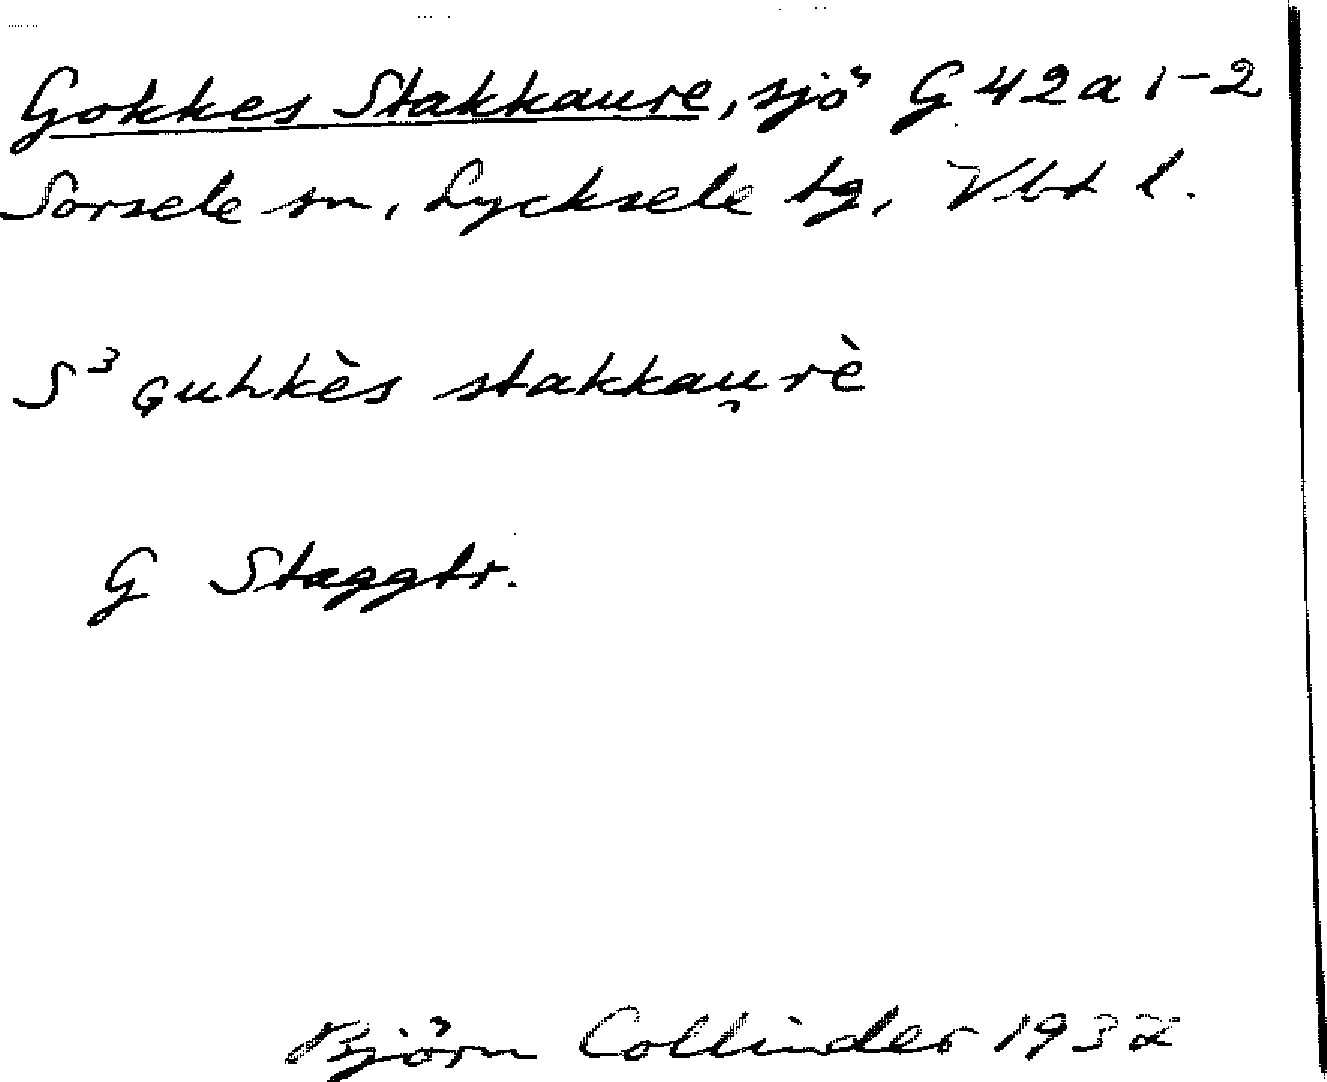 Gokkes Stakkaure, sjö G 42a 1-2
Sorsele sn, Lycksele tg, Vbt l.
S³ guhkès stakkau̯rè
G Staggtr.
Björn Collinder 1932